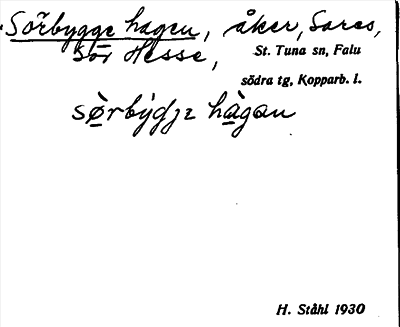 Sörbygge hagen, åker, Sares,
Sör Hesse, St. Tuna sn, Falu
södra tg, Kopparb. l.
sø̀rbýgjɪ hàgan
H. Ståhl 1930